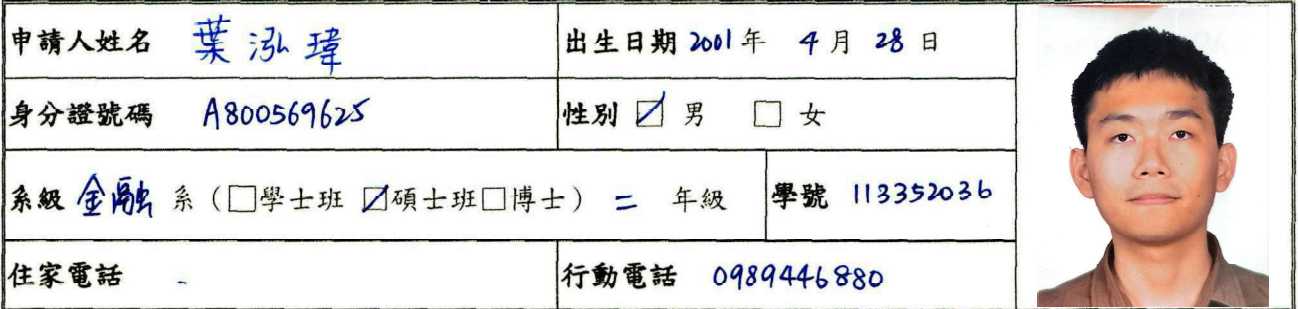 申請人姓名 葉泓瑋 出生日期 2001年 4月 28日
身分證號碼 A800569625 性別 ☑ 男 □ 女
系級 金融 系（□學士班 ☑碩士班□博士） 二 年級 學號 113352036
住家電話 - 行動電話 0989446880